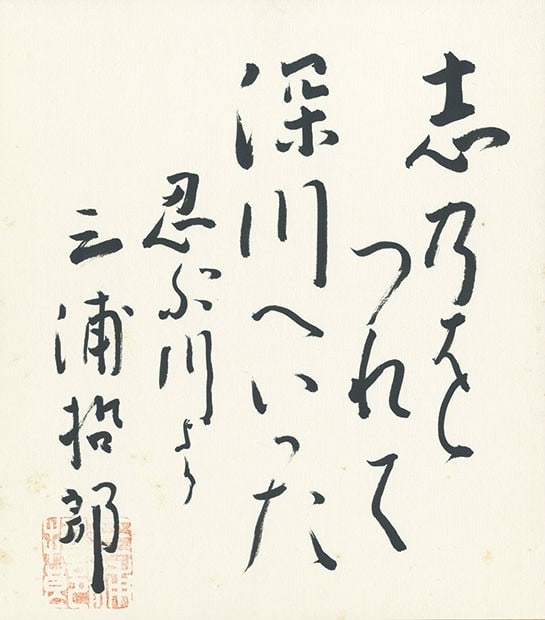 志乃を
つれて
深川へいった
忍ぶ川より
三浦哲郎